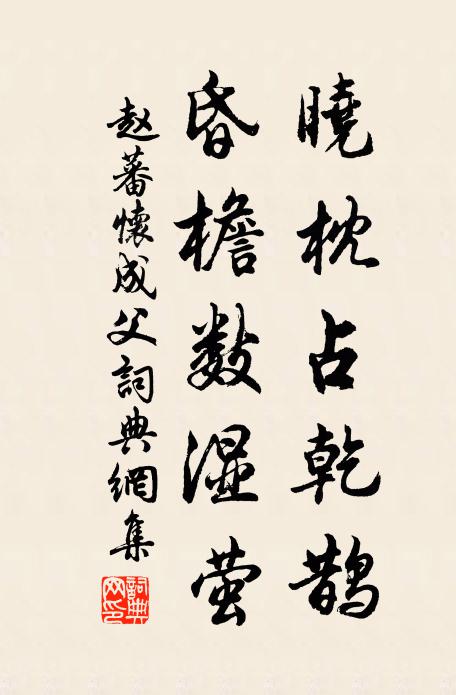 曉枕占乾鵲
昏檐数湿萤
赵蕃懷成父詞典網集
詞典网印